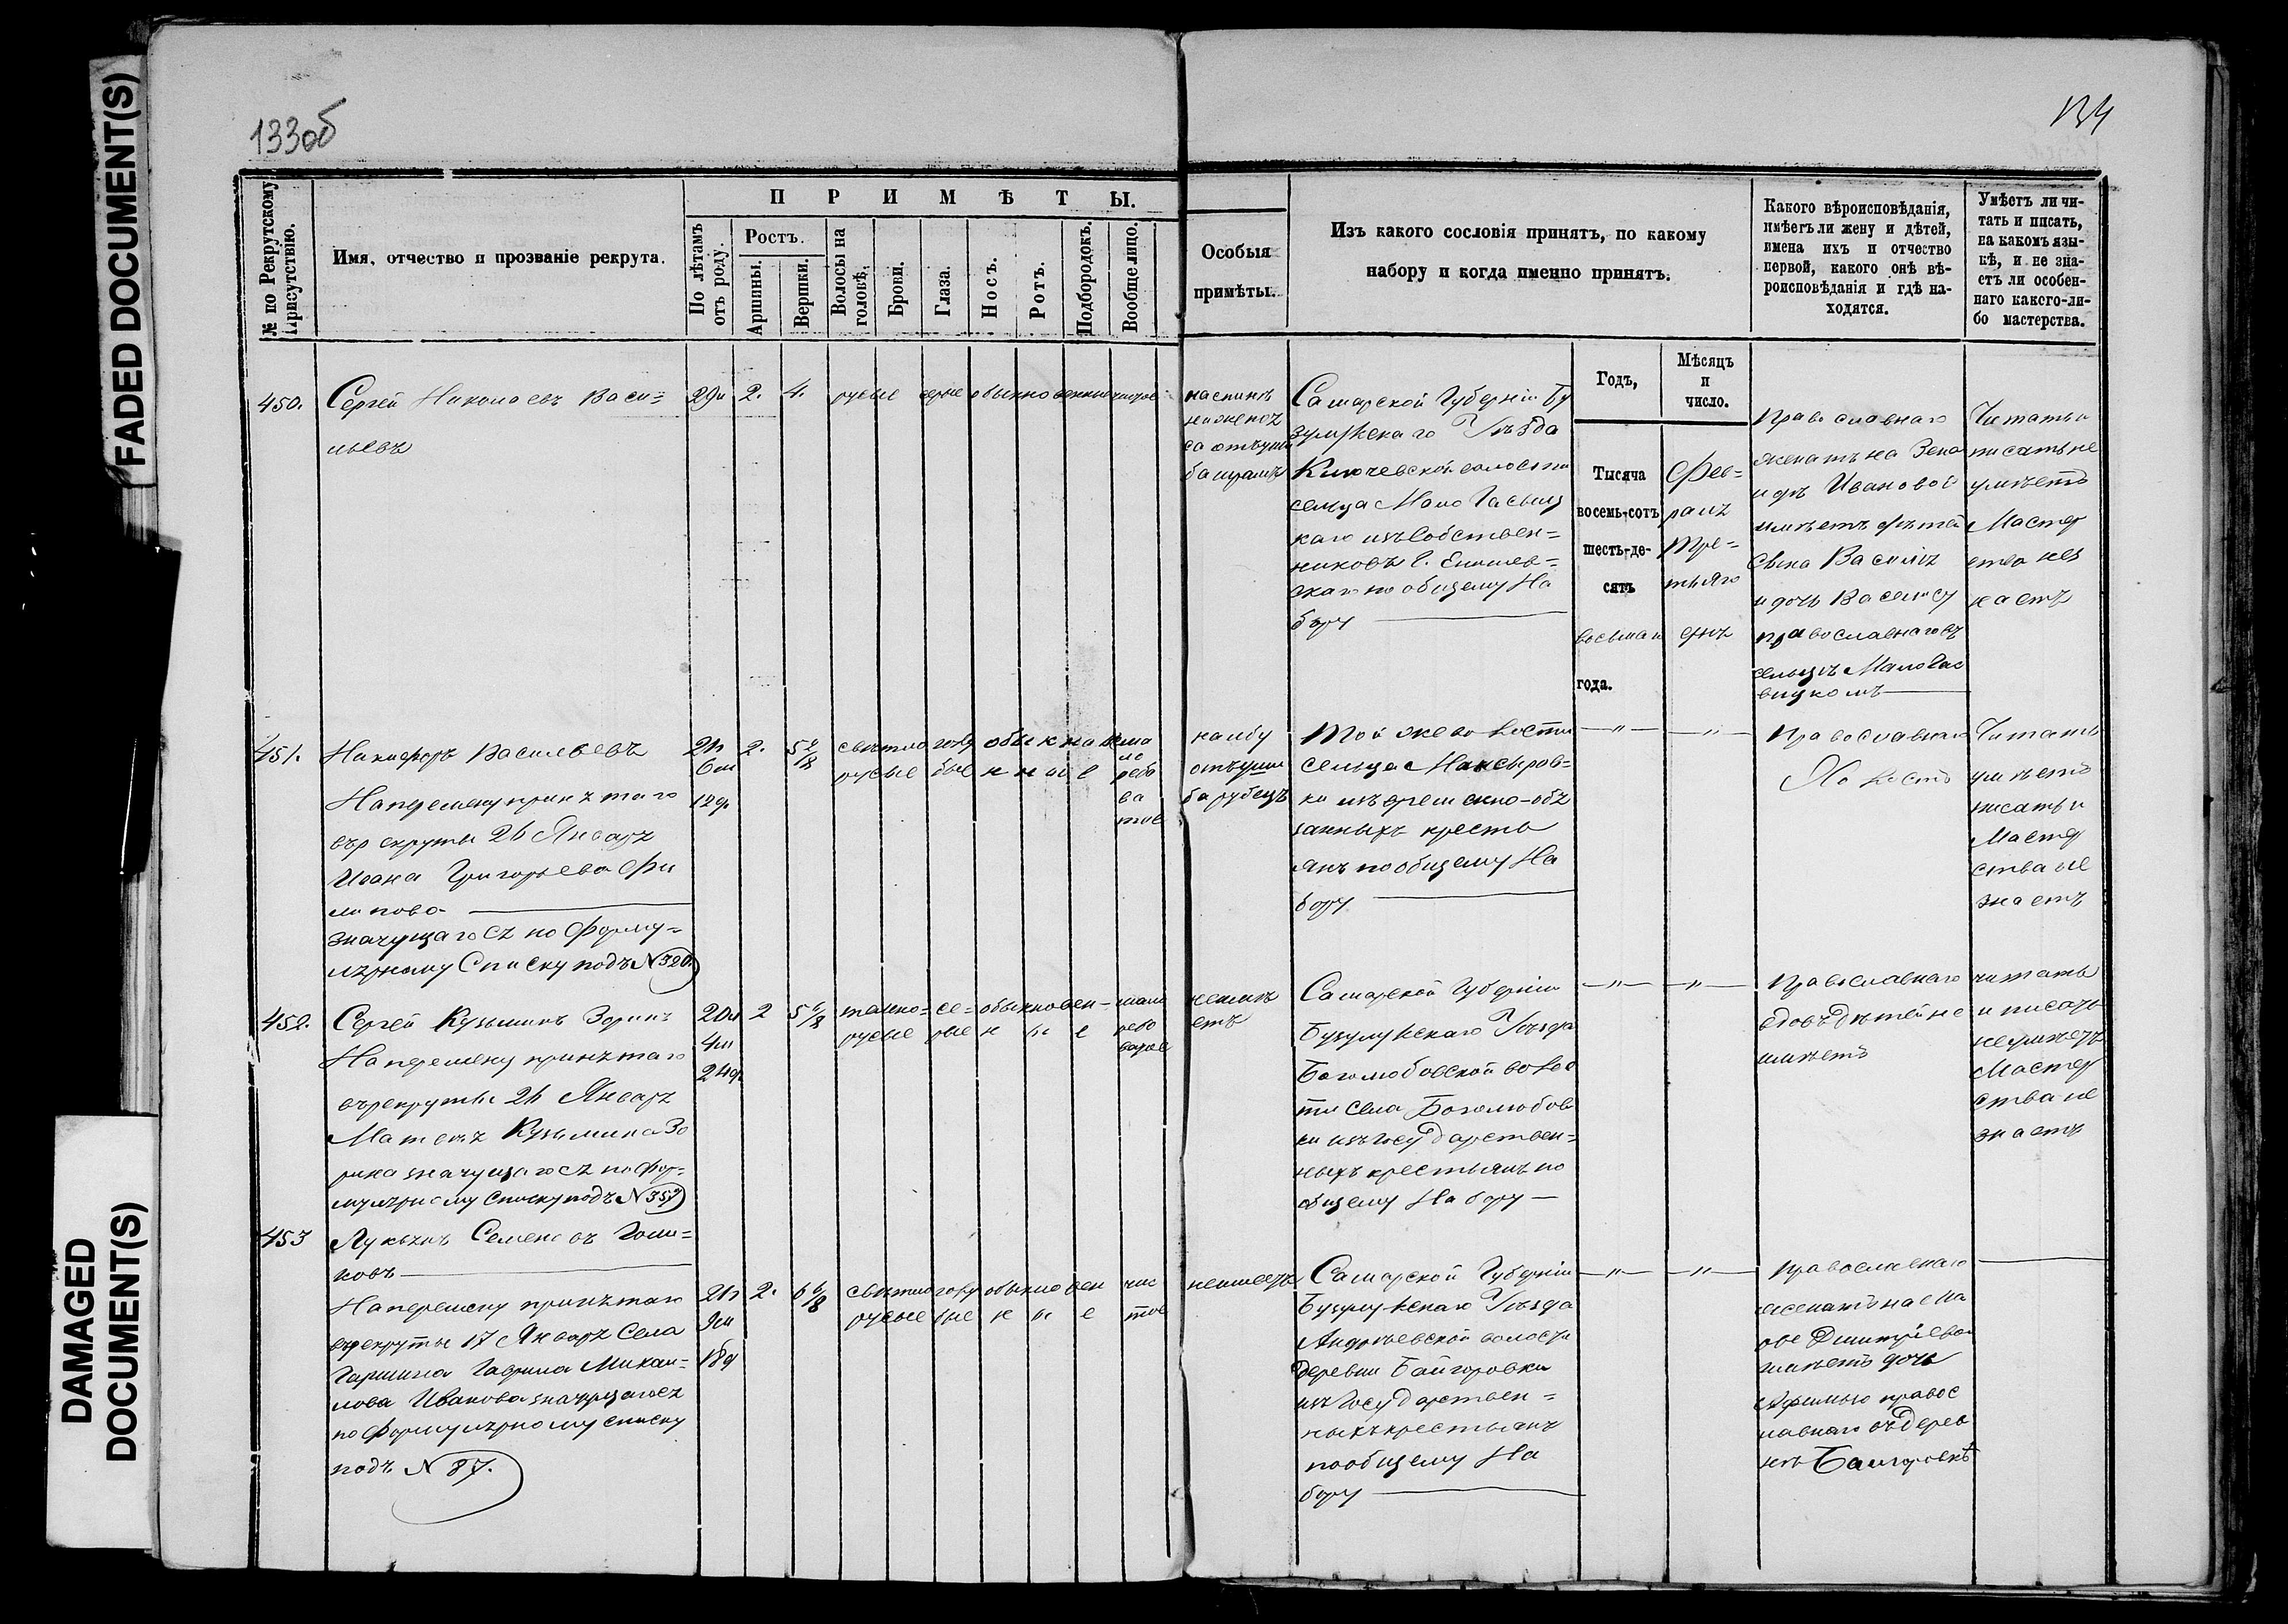 FADED DOCUMENT(S)
DAMAGED
DOCUMENT(S)
133об
134
№ по Рекрутскому
Присутствію.
Имя, отчество и прозваніе рекрута.
ПРИМѢТЫ.
По лѣтамъ
отъ роду.
Ростъ.
Аршины.
Вершки.
Волосы на
головѣ.
Брови.
Глаза.
Носъ.
Ротъ.
Подбородокъ.
Вообще лицо.
Особыя
примѣты.
Изъ какого сословія принятъ, по какому
набору и когда именно принятъ.
Какого вѣроисповѣданія,
имѣетъ ли жену и дѣтей,
имена ихъ и отчество
первой, какого онѣ вѣ-
роисповѣданія и гдѣ на-
ходятся.
Умѣетъ ли чи-
тать и писать,
на какомъ язы-
кѣ, и не зна-
етъ ли особен-
наго какого-ли-
бо мастерства.
Годъ,
Мѣсяцъ
и
число.
450.
Сергей Николаевъ Васи=
льевъ
29л
2.
4.
русые
серые
обыкновенные
чистое
на спинѣ
Самарской Губерніи Бу
зулукскаго Уѣзда
Ключевской волости
сельца Мало
каго изъ собствен=
никовъ
по общему На
бору
Тысяча
восемь-сотъ
шесть-де-
сятъ
восьмаго
года.
Фев=
раля
тре=
тьяго
дня
Православнаго
женатъ на Зена
идѣ Ивановой
имѣетъ дѣтей
сына Василія
и дочь Василису
православнаго въ
сельцѣ Мало
Читать и
писать не
умѣетъ
Мастер
ства не з
наетъ
451.
Никифоръ Васильевъ
На перемену принятаго
въ рекруты 26 Января
Ивана Григорьева Фи
липова
значущагося по форму=
лярному Списку подъ N 320.
21л
6м
12д
2.
5 2/8
светло
русые
голу
бые
обыкнове
нные
ма
ло
рябо
ва
тое
на лбу
отъ уши
ба рубецъ
Той же волости
сельца Максыров=
ки изъ временно-обя
занныхъ кресть
янъ по общему На
бору
Православнаго
Холостъ
Читать
умѣетъ
писать и
Мастер
ства не
знаетъ
452.
Сергей Кузьминъ Зоринъ
На перемену принятаго
въ рекруты 26 Января
Матвея Кузьмина Зо
рина значущагося по фор=
мулярному списку подъ N 359
20л
4м
24д
2
5 6/8
темно=
русые
се=
рые
обыкновен-
ные
мало
рябо
ватое
не имѣ
етъ
Самарской Губерніи
Бузулукскаго Уѣзда
Боголюбовской волос
ти села Боголюбов
ки изъ Государствен=
ныхъ крестьянъ по
общему Набору
Православнаго
вдовъ дѣтей не
имѣетъ
читать
и писать
не умѣетъ
Мастер
ства не
знаетъ
453
Лукьянъ Семеновъ Голи=
ковъ
На перемену принятаго
въ рекруты 17 Января Села
Гаршина Гаврила Михаи=
лова Иванова значущагося
по формулярному списку
подъ N 87.
21л
9м
18д
2.
6 6/8
светло
русые
голу
бые
обыкновен
ные
чис
тое
не имеетъ
Самарской Губерніи
Бузулукскаго Уѣзда
Андреевской волости
деревни Байгоровки
изъ Государствен=
ныхъ крестьянъ
по общему На
бору
Православнаго
женатъ на
Дмитріевой
имѣетъ дочь
Афимью правос
лавнаго въ дерев
нѣ Байгоровкѣ